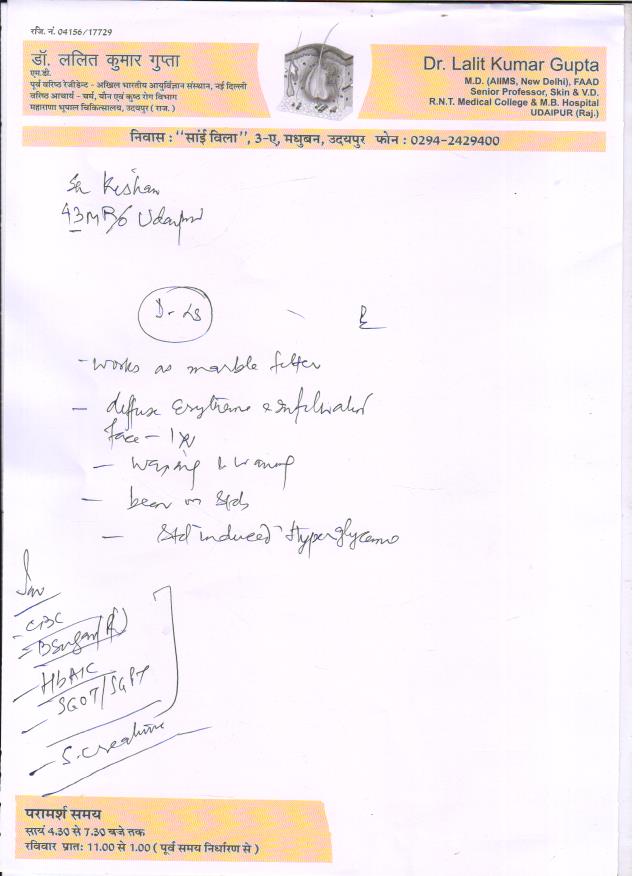 रजि. नं. 04156/17729
डॉ. ललित कुमार गुप्ता
एम.डी.
पूर्व वरिष्ठ रेजीडेन्ट - अखिल भारतीय आयुर्विज्ञान संस्थान, नई दिल्ली
वरिष्ठ आचार्य - चर्म, यौन एवं कुष्ठ रोग विभाग
महाराणा भूपाल चिकित्सालय, उदयपुर ( राज. )
Dr. Lalit Kumar Gupta
M.D. (AIIMS, New Delhi), FAAD
Senior Professor, Skin & V.D.
R.N.T. Medical College & M.B. Hospital
UDAIPUR (Raj.)
निवास : "सांई विला", 3-ए, मधुबन, उदयपुर फोन : 0294-2429400
Kishan
43 M Udaipur
- works as marble fitter
- diffuse
face - 1
- waxing & waning
- been on Stds
- Std induced Hyperglycemia
Inv
- CBC
- B Sugar
- HbA1C
- SGOT/SGPT
- S. Creatinine
परामर्श समय
सायं 4.30 से 7.30 बजे तक
रविवार प्रातः 11.00 से 1.00 ( पूर्व समय निर्धारण से )